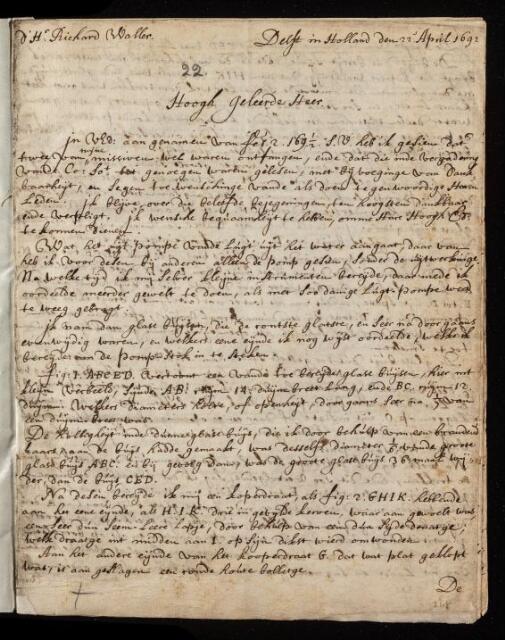 D'Hr. Richard Waller.
Delft in Holland den 22e April 1692
22.
Hoogh geleerde Heer
In VEd: aan genamen van S. V. heb ik gesien dat
twee van mijne missiven wel waren ontfangen, ende dat die inde vergadering
vande Co: So: tot genoegen waren gelesen, met bij voeginge van dank
baarheijt, en Segen toe wenschinge vande als doen tegenwoordige Heren
Leden. Ik blijve, over die beleefde bejegeningen, ten hoogsten dankbaar
ende verpligt, ik wensche bequaamheijt te hebben, omme Hare Hoogh Ed.
te konnen dienen.
Wat het uijt pompe vande Lugt uijt het water aangaat, daar van
heb ik voor desen bij anderen
Na welke tijd ik mij selver kleijne instrumenten bereijde, daar mede ik
oordeelde meerder gewelt te doen, als met Sodanige Lugt-Pompe wert
te weeg gebragt
Ik nam dan glase buijsen, die de rontste glatste, en seer na door gaans
evenwijdig waren, en welkers eene eijnde ik nog wijt oordeelde, welk ik
bereijde om de Pomp-Stok in te steken.
Fig: 1. ABCED. Vertoont een vande toe bereijde glase buijsen, hier int
kleijn verbeelt, sijnde AB: ruijm 14. duijmbreet Lang, ende BC. ruijm 12
duijm: welkers diameter holte, of openheijt, door gaans seer na van
een duijm-breet was.
De holligheijt inde dunne glase buijs, die ik door behulp van een brandende
kaars, aan de buijs hadde gemaakt, was desselfs diameter vande groote
glase buijs ABC. en bij gevolg dan, was de groote glase buijs 36 maal wij
der, dan de buijs CED.
Na desen bereijde ik mij een koperdraat, als fig: 2. GHIK. hebbende
aan het eene eijnde, als H. I. K. drie in gevijlde kerven, waar aan gevoelt was
een seer dun Seem-Leere Lapje, door behulp van een dun Sijde draatge;
welk draatge int midden aan I. op sijn dikst wierd omwonden.
Aan het andere eijnde van het koperdraat G. dat wat plat geklopt
was, is aan geslagen een ronde houte bolletge.
De